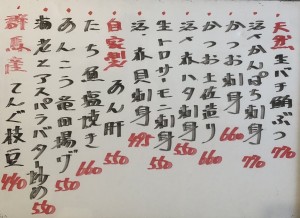 天然生バチ鮪ぶつ 770
活〆かんぱち刺身 770
かつお刺身 660
かつお土佐造り 660
活〆赤ハタ刺身 550
生トロサーモン刺身 550
活〆赤貝刺身 495
自家製あん肝 550
たちの魚塩焼き 660
あんこう竜田揚げ 550
海老とアスパラバター炒め 550
群馬産てんぐ枝豆 440